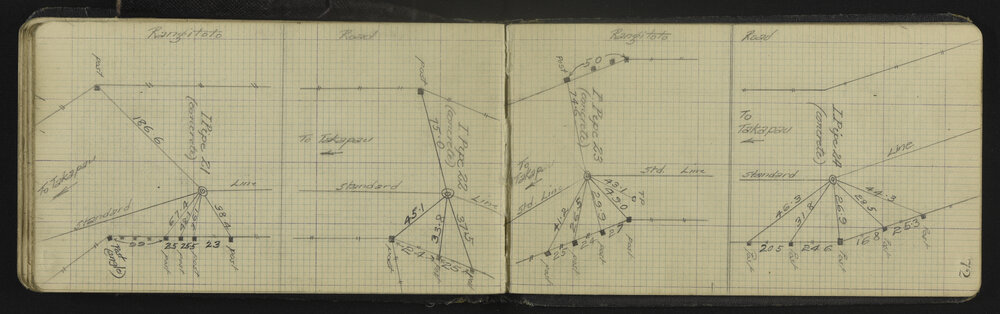 Rangitoto
Road
Post
186.6
I Pipe 21
(concrete)
To Takapau
Standard
Line
67.4
58.4
99
25
25.5
23
Post
(angle)
Post
Post
Post
Post
75.0
I Pipe 22
(concrete)
To
Takapau
Standard
Line
45.1
33.8
37.5
24.3
25
Post
Post
Rangitoto
Road
50
Post
74.6
I Pipe 23
(concrete)
To
Takapau
Std Line
Std Line
41.8
26.5
29.9
49.0
43.1
T.P
25
24
27
Post
Post
Post
Post
I Pipe 24
(concrete)
To
Takapau
Standard
Line
46.3
31.8
26.9
29.5
44.3
20.5
24.6
16.8
25.3
Post
Post
Post
Post
Post
72